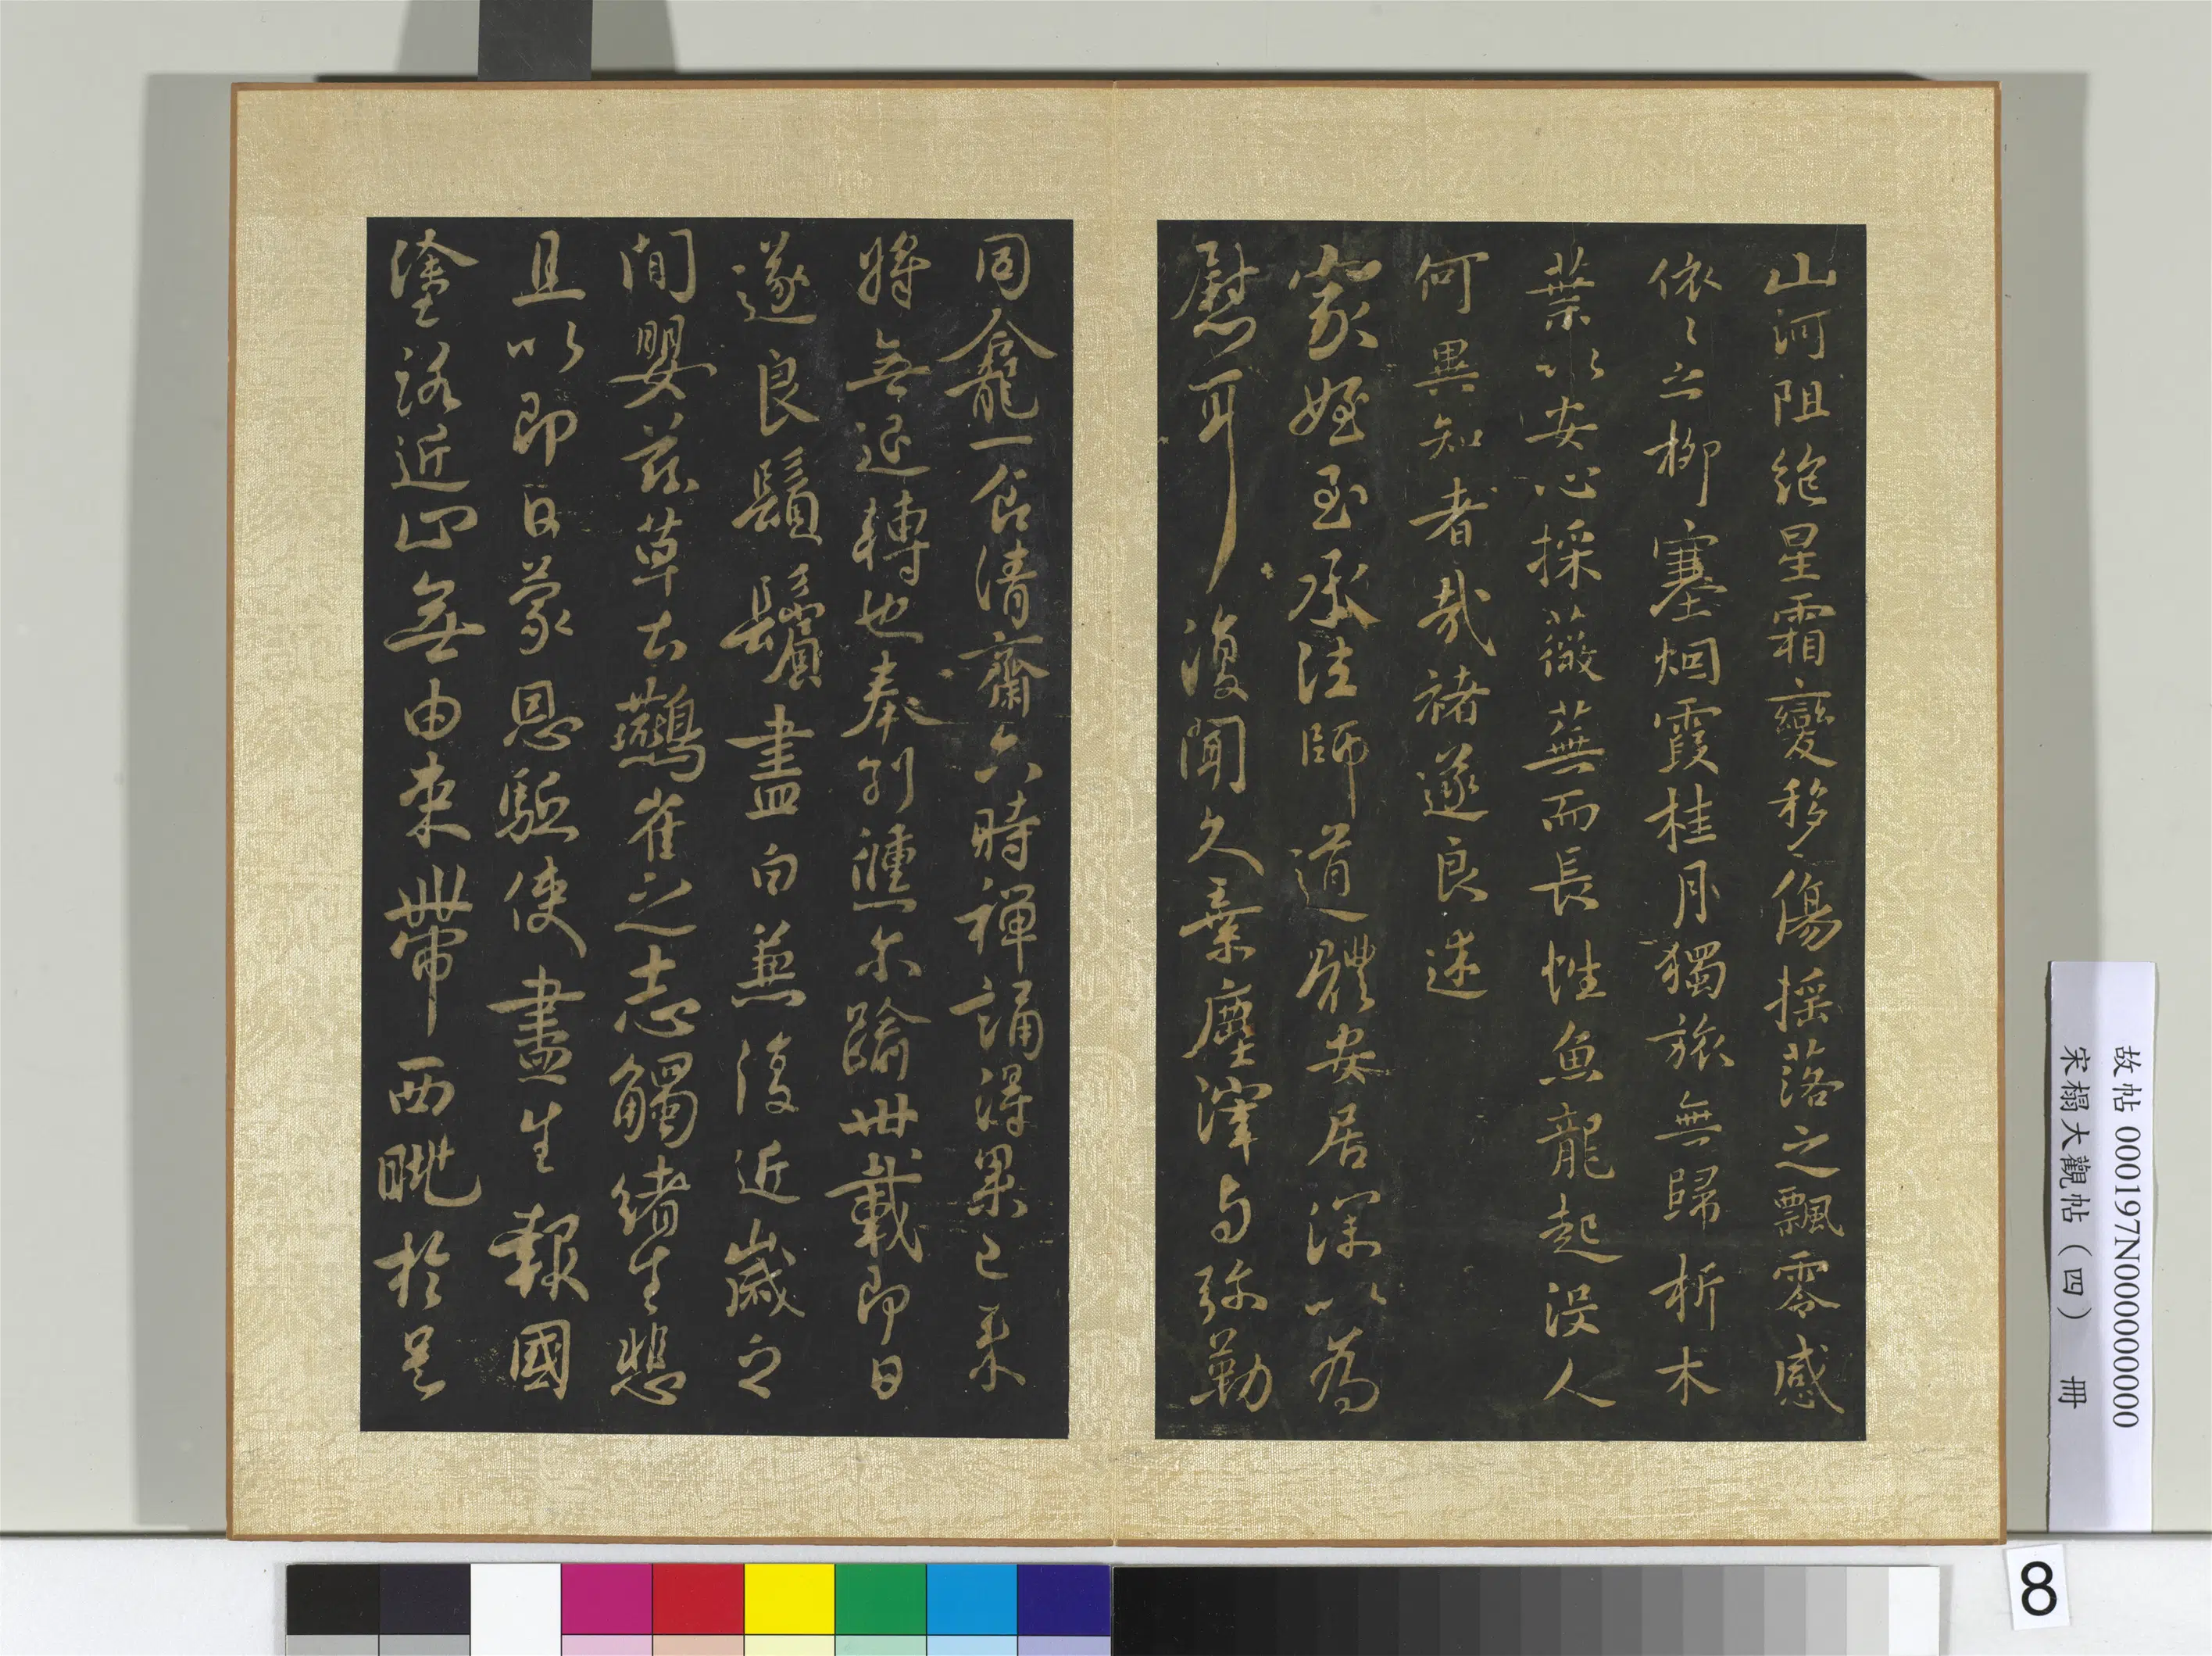 山河阻絶星霜變移傷揺落之飄零感
依〻之柳塞烟霞桂月獨旅無歸析木
葉以安心採薇蕪而長性魚龍起没人
何異知者哉褚遂良述
家姪至承法師道體安居深以為
慰耳復聞久棄塵滓与弥勒
同龕一食清齋六時禪誦得果已来
將無退轉也奉別倏尓踰卅載即日
遂良鬚鬢盡白兼復近歲之
間嬰茲草土鷰雀之志觸緒生悲
且以即日蒙恩駈使盡生報國
塗路近止無由束帶西眺於邑
故帖 000197N000000000
宋榻大觀帖（四） 冊
8